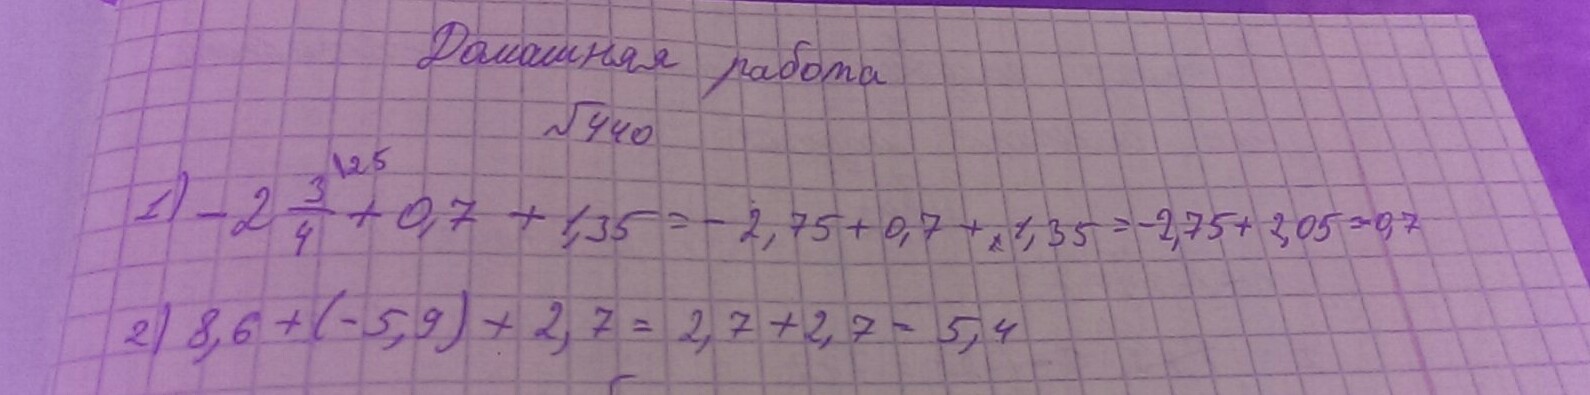 Домашняя работа
№440
1) -2 3/4 \25 + 0,7 + 1,35 = -2,75 + 0,7 + 1,35 = -2,75 + 2,05 = -0,7
2) 8,6 + (-5,9) + 2,7 = 2,7 + 2,7 = 5,4